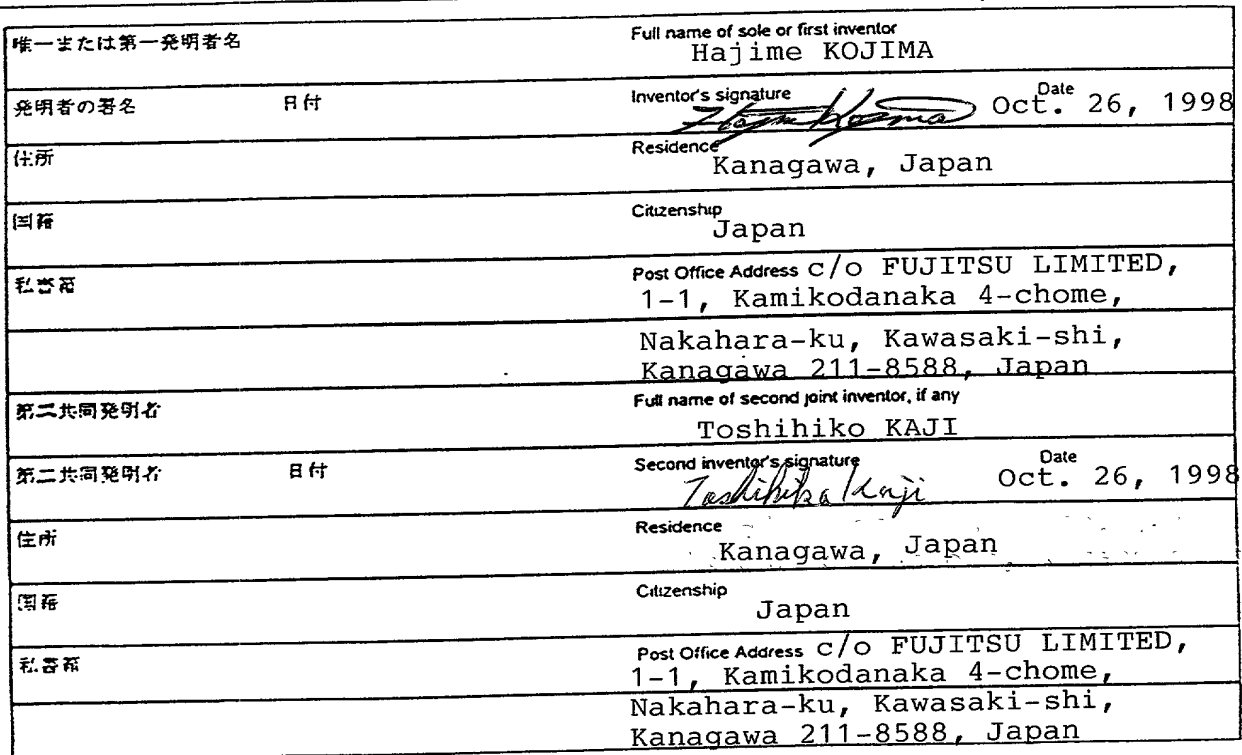 唯一または第一発明者名
Full name of sole or first inventor
Hajime KOJIMA
発明者の署名 日付
Inventor's signature Date
Hajime Kojima Oct. 26, 1998
住所
Residence
Kanagawa, Japan
国籍
Citizenship
Japan
私書箱
Post Office Address c/o FUJITSU LIMITED,
1-1, Kamikodanaka 4-chome,
Nakahara-ku, Kawasaki-shi,
Kanagawa 211-8588, Japan
第二共同発明者
Full name of second joint inventor, if any
Toshihiko KAJI
第二共同発明者 日付
Second inventor's signature Date
Toshihiko Kaji Oct. 26, 1998
住所
Residence
Kanagawa, Japan
国籍
Citizenship
Japan
私書箱
Post Office Address c/o FUJITSU LIMITED,
1-1, Kamikodanaka 4-chome,
Nakahara-ku, Kawasaki-shi,
Kanagawa 211-8588, Japan